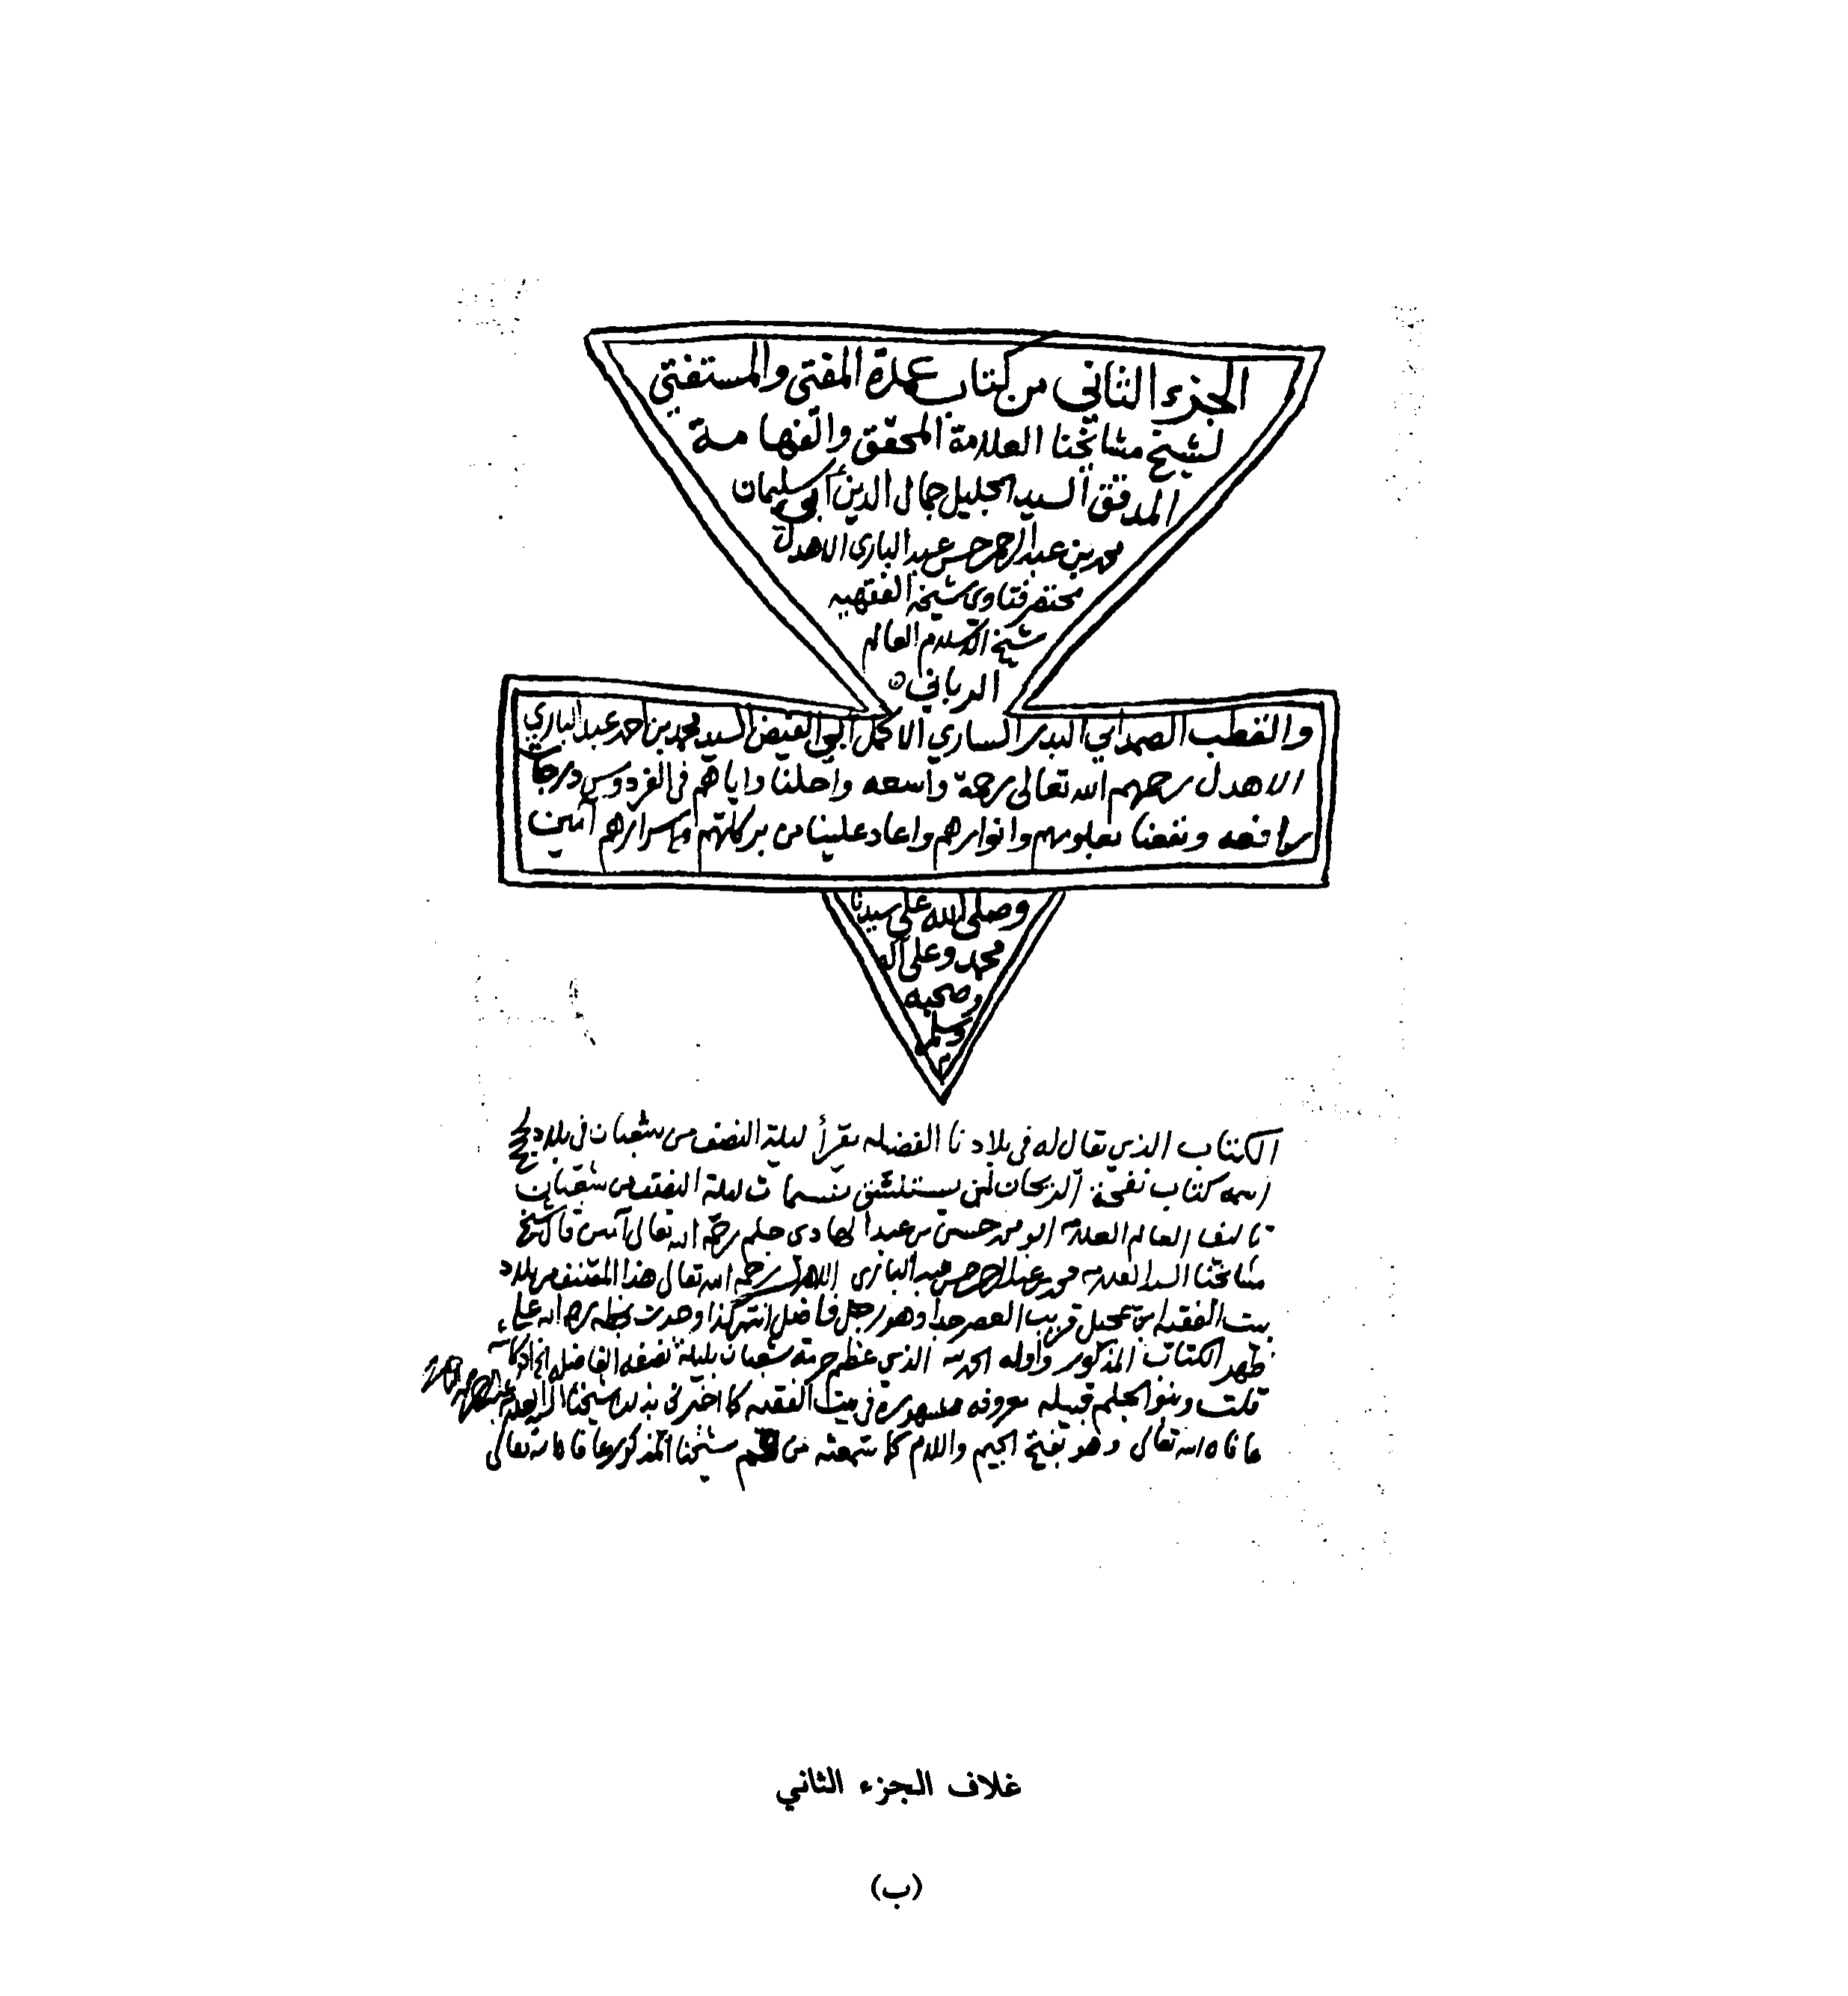 الجزء الثاني من كتاب عمدة المفتي والمستفتي
لشيخ مشائخنا العلامة المحقق والفهامة
المدقق السيد الجليل جمال الدين أبي سليمان
محمد بن عبد الرحمن حسن عبد الباري الاهدل
مختصر فتاوى شيخه الفقهيه
شيخ الاسلام العالم
الرباني
والقطب الصمداني البدر الساري الاكمل أبي الفيض السيد محمد بن احمد عبد الباري
الاهدل رحمهم الله تعالى رحمة واسعه واحلنا واياهم في الفردوس درجات
رافعه ونفعنا بعلومهم وانوارهم واعاد علينا من بركاتهم واسرارهم آمين
وصلى الله على سيدنا
محمد وعلى آله
وصحبه
وسلم
الكتاب الذي يقال له في بلادنا الفضيله يقرأ ليلة النصف من شعبان في بلاد
اسمه كتاب نفحة الريحان لمن يستنشق نسمات ليلة النصف من شعبان
تاليف العالم العلامه حسن بن عبد الهادي جلم رحمه الله تعالى آمين قال شيخ
مشائخنا السيد العلامه محمد عبد الرحمن حسن عبد الباري الاهدل رحمه الله تعالى هذا المصنف من بلاد
بيت الفقيه ابن عجيل قريب العصر جدا وهو رجل فاضل انتهى كذا وجدت بخطه رحمه الله على
ظهر الكتاب المذكور واوله الحمد لله الذي عظم حرمة شعبان بليلة نصفه الفاضله
قلت وبنو الجلم قبيله معروفه مشهورة في بيت الفقيه كما اخبرني بذلك شيخنا السيد العلامه
عافاه الله تعالى وهو بفتح الجيم واللام كما سمعته من فم شيخنا المذكور عافاه الله تعالى
غلاف الجزء الثاني
(ب)